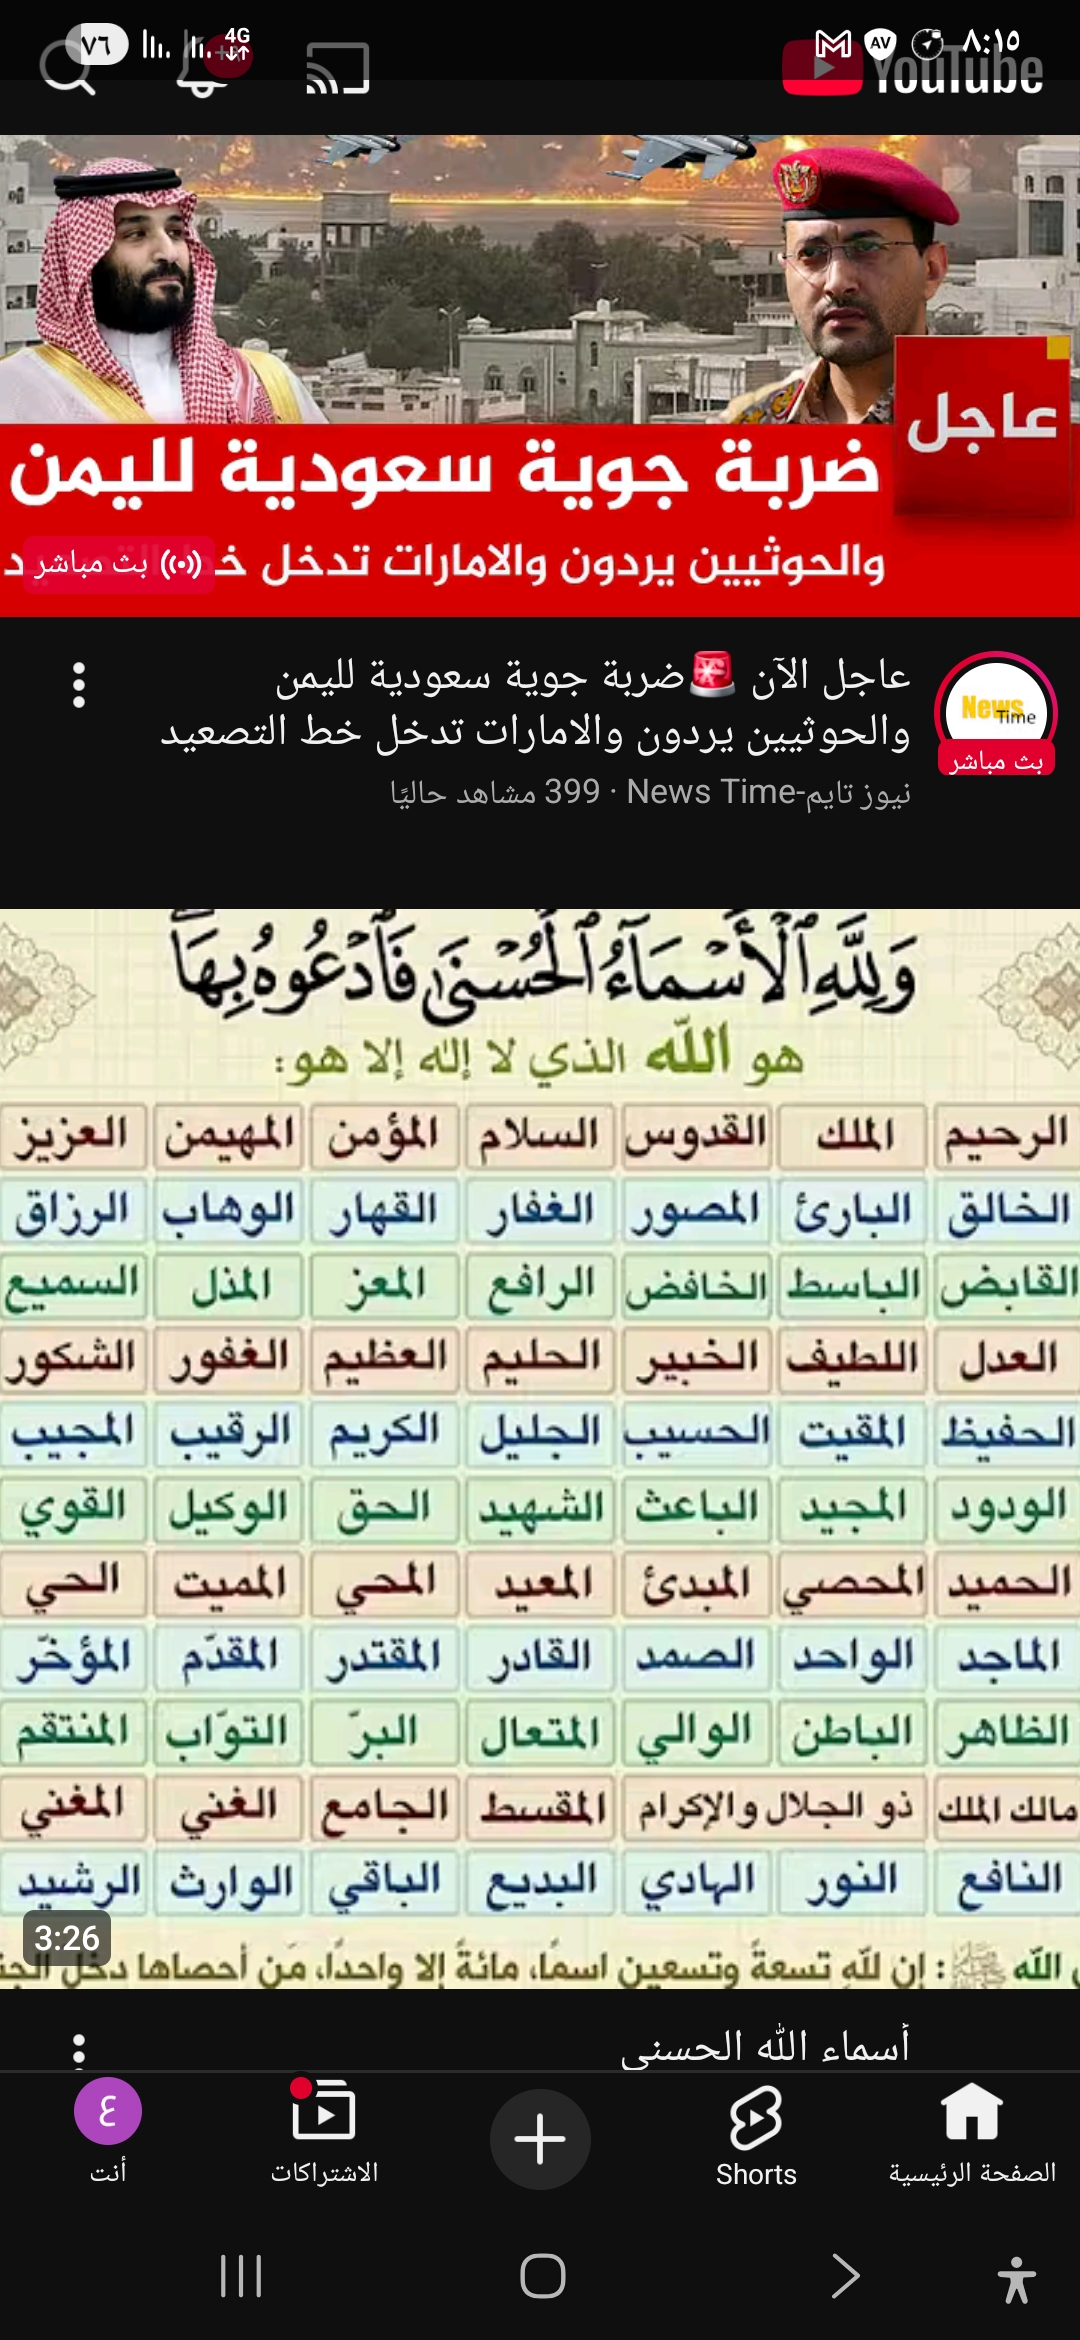 ٧٦
4G
AV
٨:١٥
YouTube
عاجل
ضربة جوية سعودية لليمن
والحوثيين يردون والامارات تدخل
بث مباشر
عاجل الآن 🚨ضربة جوية سعودية لليمن
والحوثيين يردون والامارات تدخل خط التصعيد
نيوز تايم-News Time · 399 مشاهد حاليًا
News
Time
بث مباشر
وَلِلَّهِ الْأَسْمَاءُ الْحُسْنَىٰ فَادْعُوهُ بِهَا
هو الله الذي لا إله إلا هو:
الرحيم الملك القدوس السلام المؤمن المهيمن العزيز
الخالق البارئ المصور الغفار القهار الوهاب الرزاق
القابض الباسط الخافض الرافع المعز المذل السميع
العدل اللطيف الخبير الحليم العظيم الغفور الشكور
الحفيظ المقيت الحسيب الجليل الكريم الرقيب المجيب
الودود المجيد الباعث الشهيد الحق الوكيل القوي
الحميد المحصي المبدئ المعيد المحي المميت الحي
الماجد الواحد الصمد القادر المقتدر المقدّم المؤخّر
الظاهر الباطن الوالي المتعال البرّ التوّاب المنتقم
مالك الملك ذو الجلال والإكرام المقسط الجامع الغني المغني
النافع النور الهادي البديع الباقي الوارث الرشيد
الله ﷺ : إن للهِ تسعةً وتسعين اسمًا، مائةً إلا واحدًا، مَن أحصاها دخل
3:26
أسماء الله الحسنى
الصفحة الرئيسية
Shorts
الاشتراكات
ع
أنت